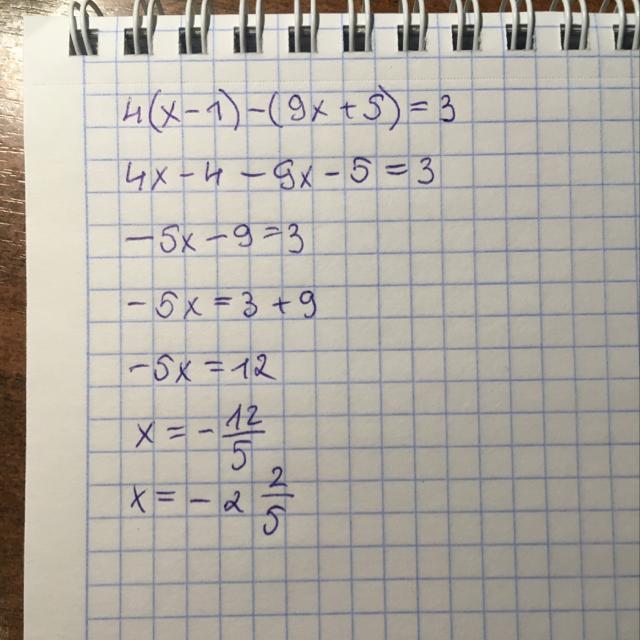 4(x-1)-(9x+5)=3
4x-4-9x-5=3
-5x-9=3
-5x=3+9
-5x=12
x=-12/5
x=-2 2/5